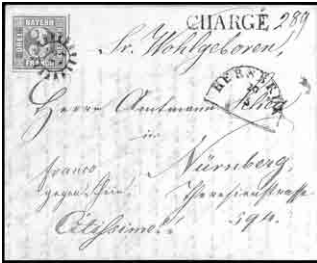 BAYERN
FRANCO
CHARGÉ 289
Sr. Wohlgeboren,
Herrn Amtmann
in
Nürnberg,
franco
gegen Schein.
Theresienstrasse
Citissime!
594.